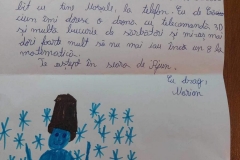 bit cu tine Morale, la telefon. Eu de
cum îmi doresc o dronă cu telecomandă 3D
și multă bucurie de sărbători și mi-aș mai
dori foarte mult să nu mai iau încă un 8 la
matematică.
Te aștept în seara de Ajun.
Cu drag,
Marian